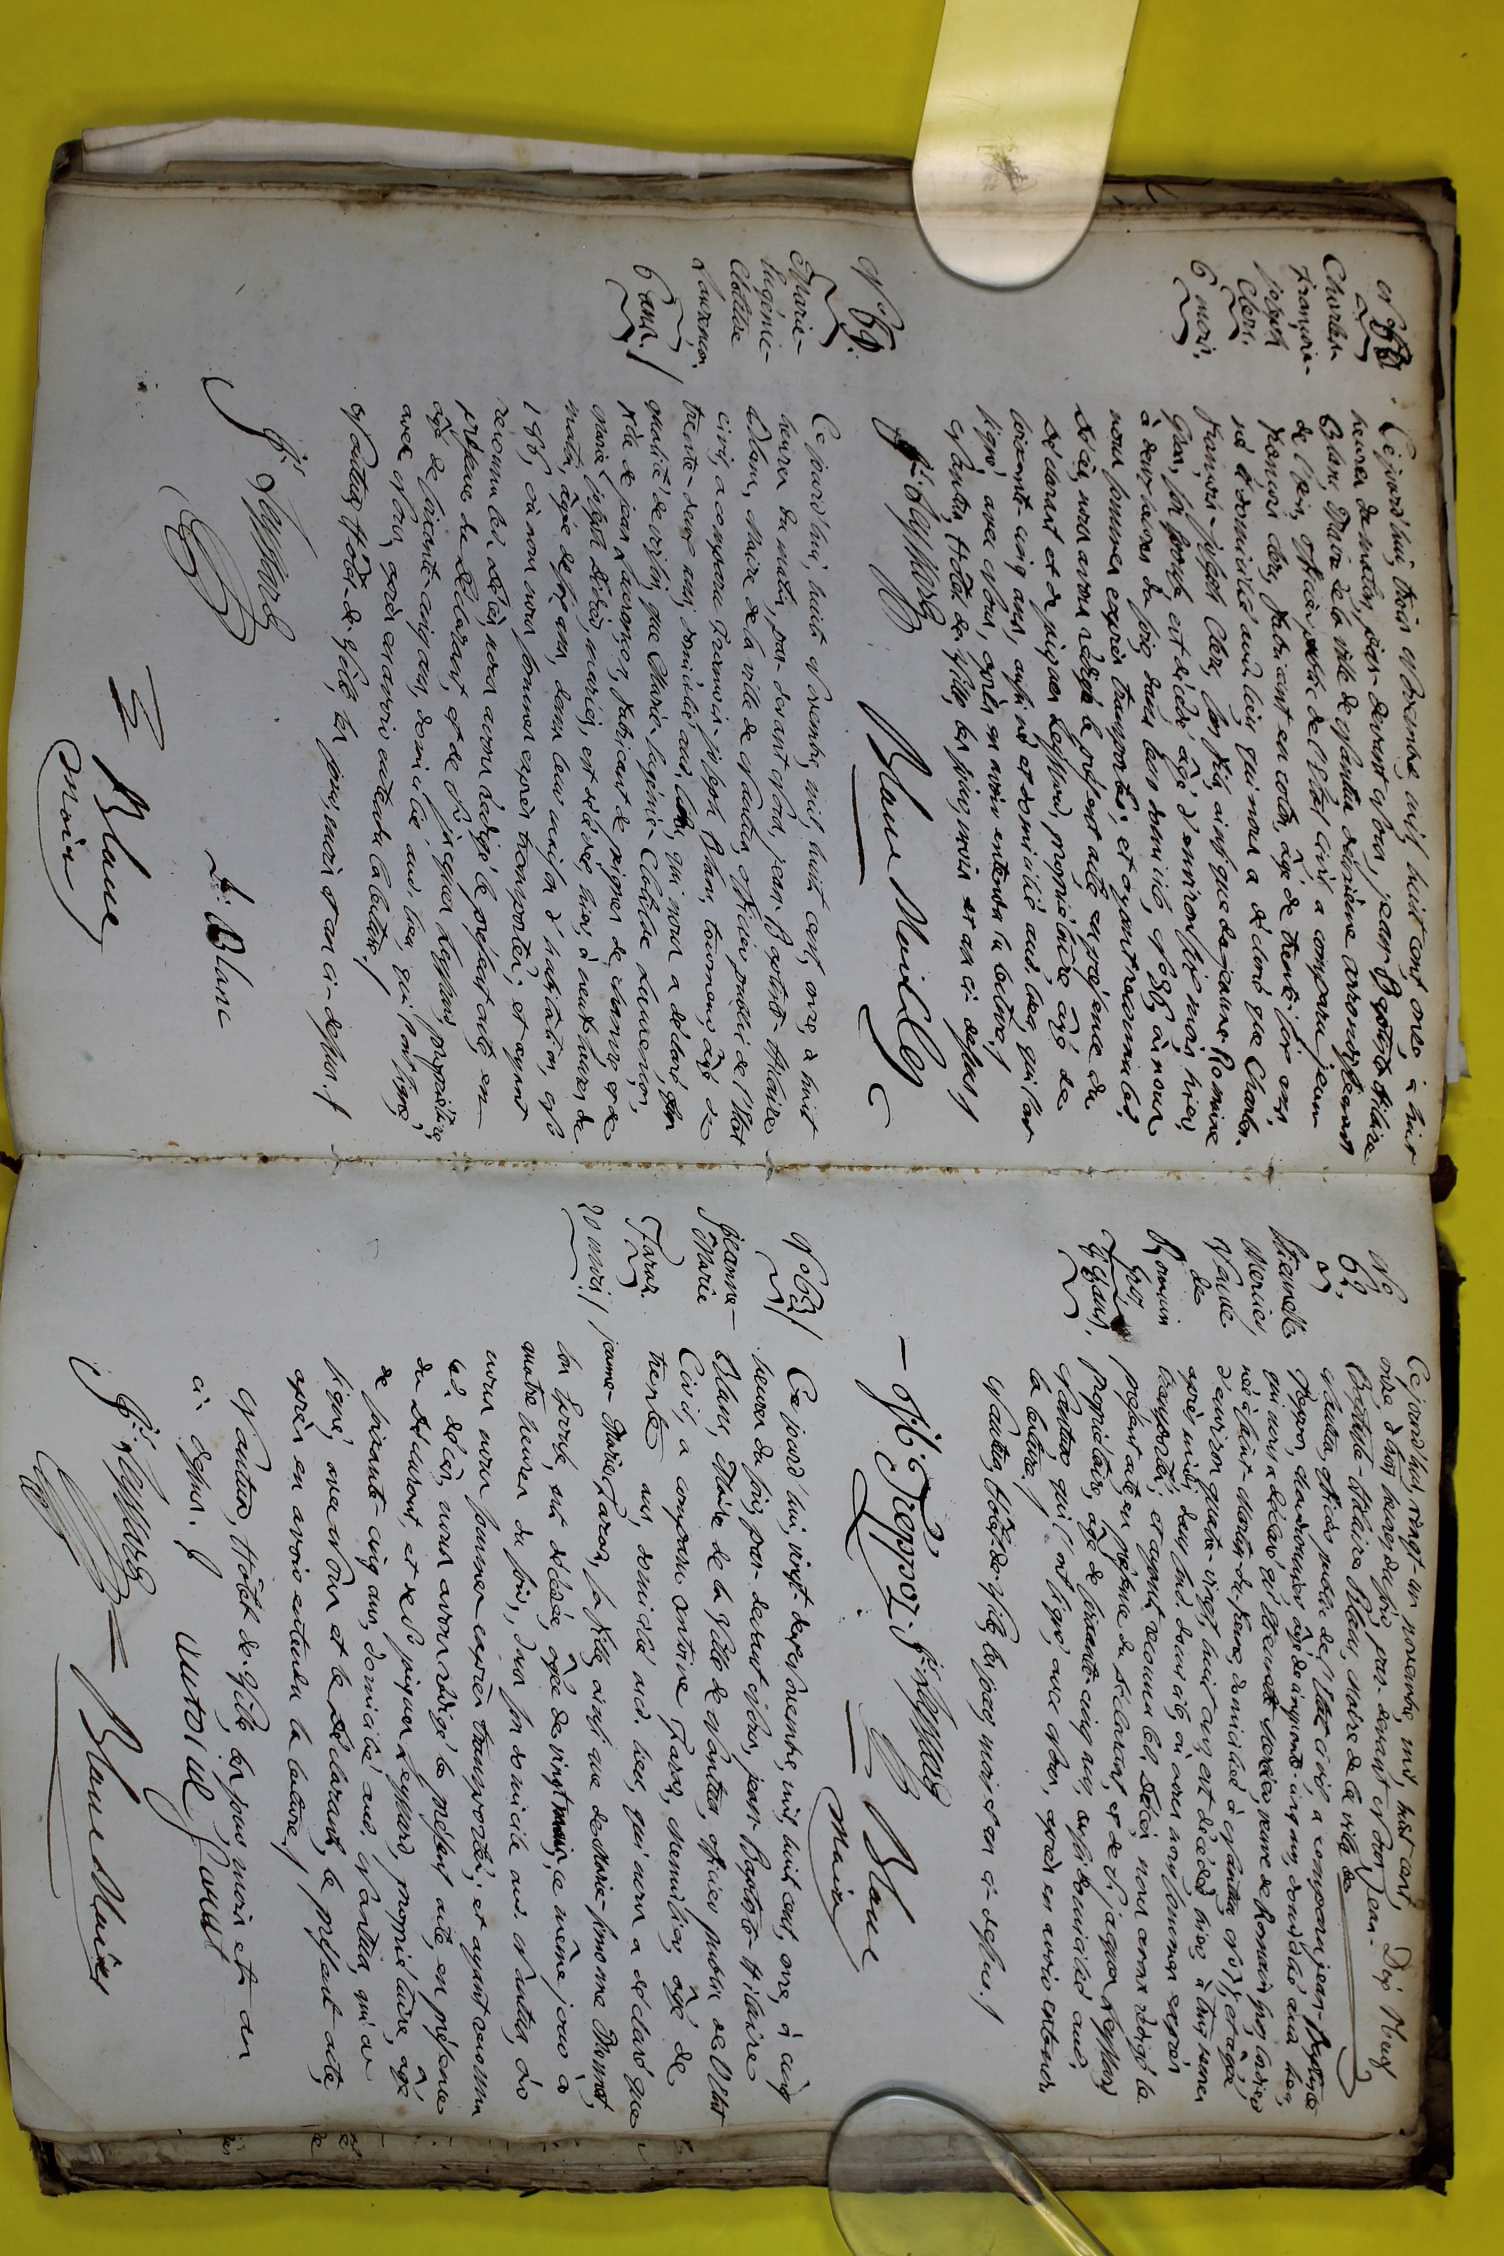 N.° 60
Charles-
François-
joseph
Clerc.
6 mois.
Ce jourd'hui, trois Novembre, mil, huit cent onze, à huit
heures du matin, par-devant Nous, jean-Baptiste Hilaire
Blanc, Maire de la ville de Nantua, arrondissement
de l'ain, officier public de l'Etat Civil, a comparu jean
Clerc, fabricant en coton, âgé de trente-six ans,
né & domicilié aud. lieu, qui nous a déclaré que Charles-
François-joseph Clerc, son fils, ainsi que de jeanne Romaine
Gras, son épouse, est décédé âgé d'environ six mois, hier,
à deux heures du soir, dans leur domicile, N.° 36, où nous
nous sommes exprès transportés; et ayant reconnu led.
décès, nous avons rédigé le présent acte en présence du
déclarant et de jacques Leyssard, propriétaire âgé de
soixante-cinq ans, aussi né et domicilié aud. lieu, qui ont
signé, avec Nous, après en avoir entendu la lecture./
Nantua, Hôtel de Ville, les jour, mois et an ci-dessus./
J.s Leyssard Blanc Maire
N.° 61.
Marie-
Eugénie-
Clotilde
Laurençon
6 ans./
Ce jourd'hui, huit Novembre, mil, huit cent, onze, à huit
heures du matin, par-devant Nous, jean-Baptiste-Hilaire
Blanc, Maire de la ville de Nantua, officier public de l'Etat
civil, a comparu François-joseph Blanc, tourneur, âgé de
trente-deux ans, domicilié aud. lieu, qui nous a déclaré, en
qualité de voisin, que Marie-Eugénie-Clotilde Laurençon,
fille de jean Laurençon, fabricant de peignes de chanvre et de
Marie josephte, mariés, est décédée, hier, à neuf heures du
matin, âgée de six ans, dans leur maison d'habitation, N.°
186, où nous nous sommes exprès transportés; et ayant
reconnu led. décès, nous avons rédigé le présent acte, en
présence du déclarant, et de S.r jacques Leyssard, propriétaire,
âgé de soixante-cinq ans, domicilié aud. lieu, qui ont signé,
avec Nous, après en avoir entendu la lecture./
Nantua, Hôtel-de-Ville, les jour, mois & an ci-dessus./
J.s Leyssard
Blanc
Blanc
Maire
N.°
62.
Etiennette
Mercier,
Veuve
de
Romain
Gros
88 ans.
Dix Neuf
Ce jourd'hui, vingt-un novembre, mil huit cent,
onze, à trois heures du soir, par-devant Nous jean-
Baptiste-Hilaire Blanc, maire de la ville de
Nantua, officier public de l'Etat civil, a comparu jean-Baptiste
âgé de cinquante-cinq ans, domicilié aud. lieu,
qui nous a déclaré qu'Etiennette Mercier, veuve de Romain Gros,
née à Saint-Martin-du-Frêne, domiciliée à Nantua, et âgée
d'environ quatre-vingt, huit ans, est décédée hier, à trois heures
après midi, dans sond. domicile, où nous nous sommes exprès
transportés; et ayant reconnu led. décès, nous avons rédigé le
présent acte en présence du déclarant, et de S.r jacques Leyssard
propriétaire, âgé de soixante-cinq ans, aussi domicilié aud.
Nantua, qui ont signé, avec Nous, après en avoir entendu
la lecture./
Nantua, Hôtel-de-Ville, les jour, mois et an ci-dessus./
J.s Leyssard
Blanc
Maire
N.° 63/
jeanne-
Marie
Taraz.
20 mois./
Ce jourd'hui, vingt-deux Novembre, mil, huit cent, onze, à cinq
heures du soir, par-devant Nous, jean-Baptiste-Hilaire
Blanc, Maire de la Ville de Nantua, officier public de l'Etat
Civil, a comparu Antoine Taraz, âgé de
trente ans, domicilié aud. lieu, qui nous a déclaré que
jeanne-Marie Taraz, sa fille, ainsi que de Marie-
son épouse, est décédée, âgée de vingt mois, ce même jour à
quatre heures du soir, dans son domicile aud. Nantua, où
nous nous sommes exprès transportés; et ayant reconnu
led. décès, nous avons rédigé le présent acte, en présence
du déclarant, et de S.r jacques Leyssard, propriétaire, âgé
de soixante-cinq ans, domicilié aud. Nantua, qui a
signé, avec Nous et le déclarant, le présent acte,
après en avoir entendu la lecture./
Nantua, Hôtel-de-Ville, les jour, mois et an
ci-dessus./
J.s Leyssard Blanc Maire